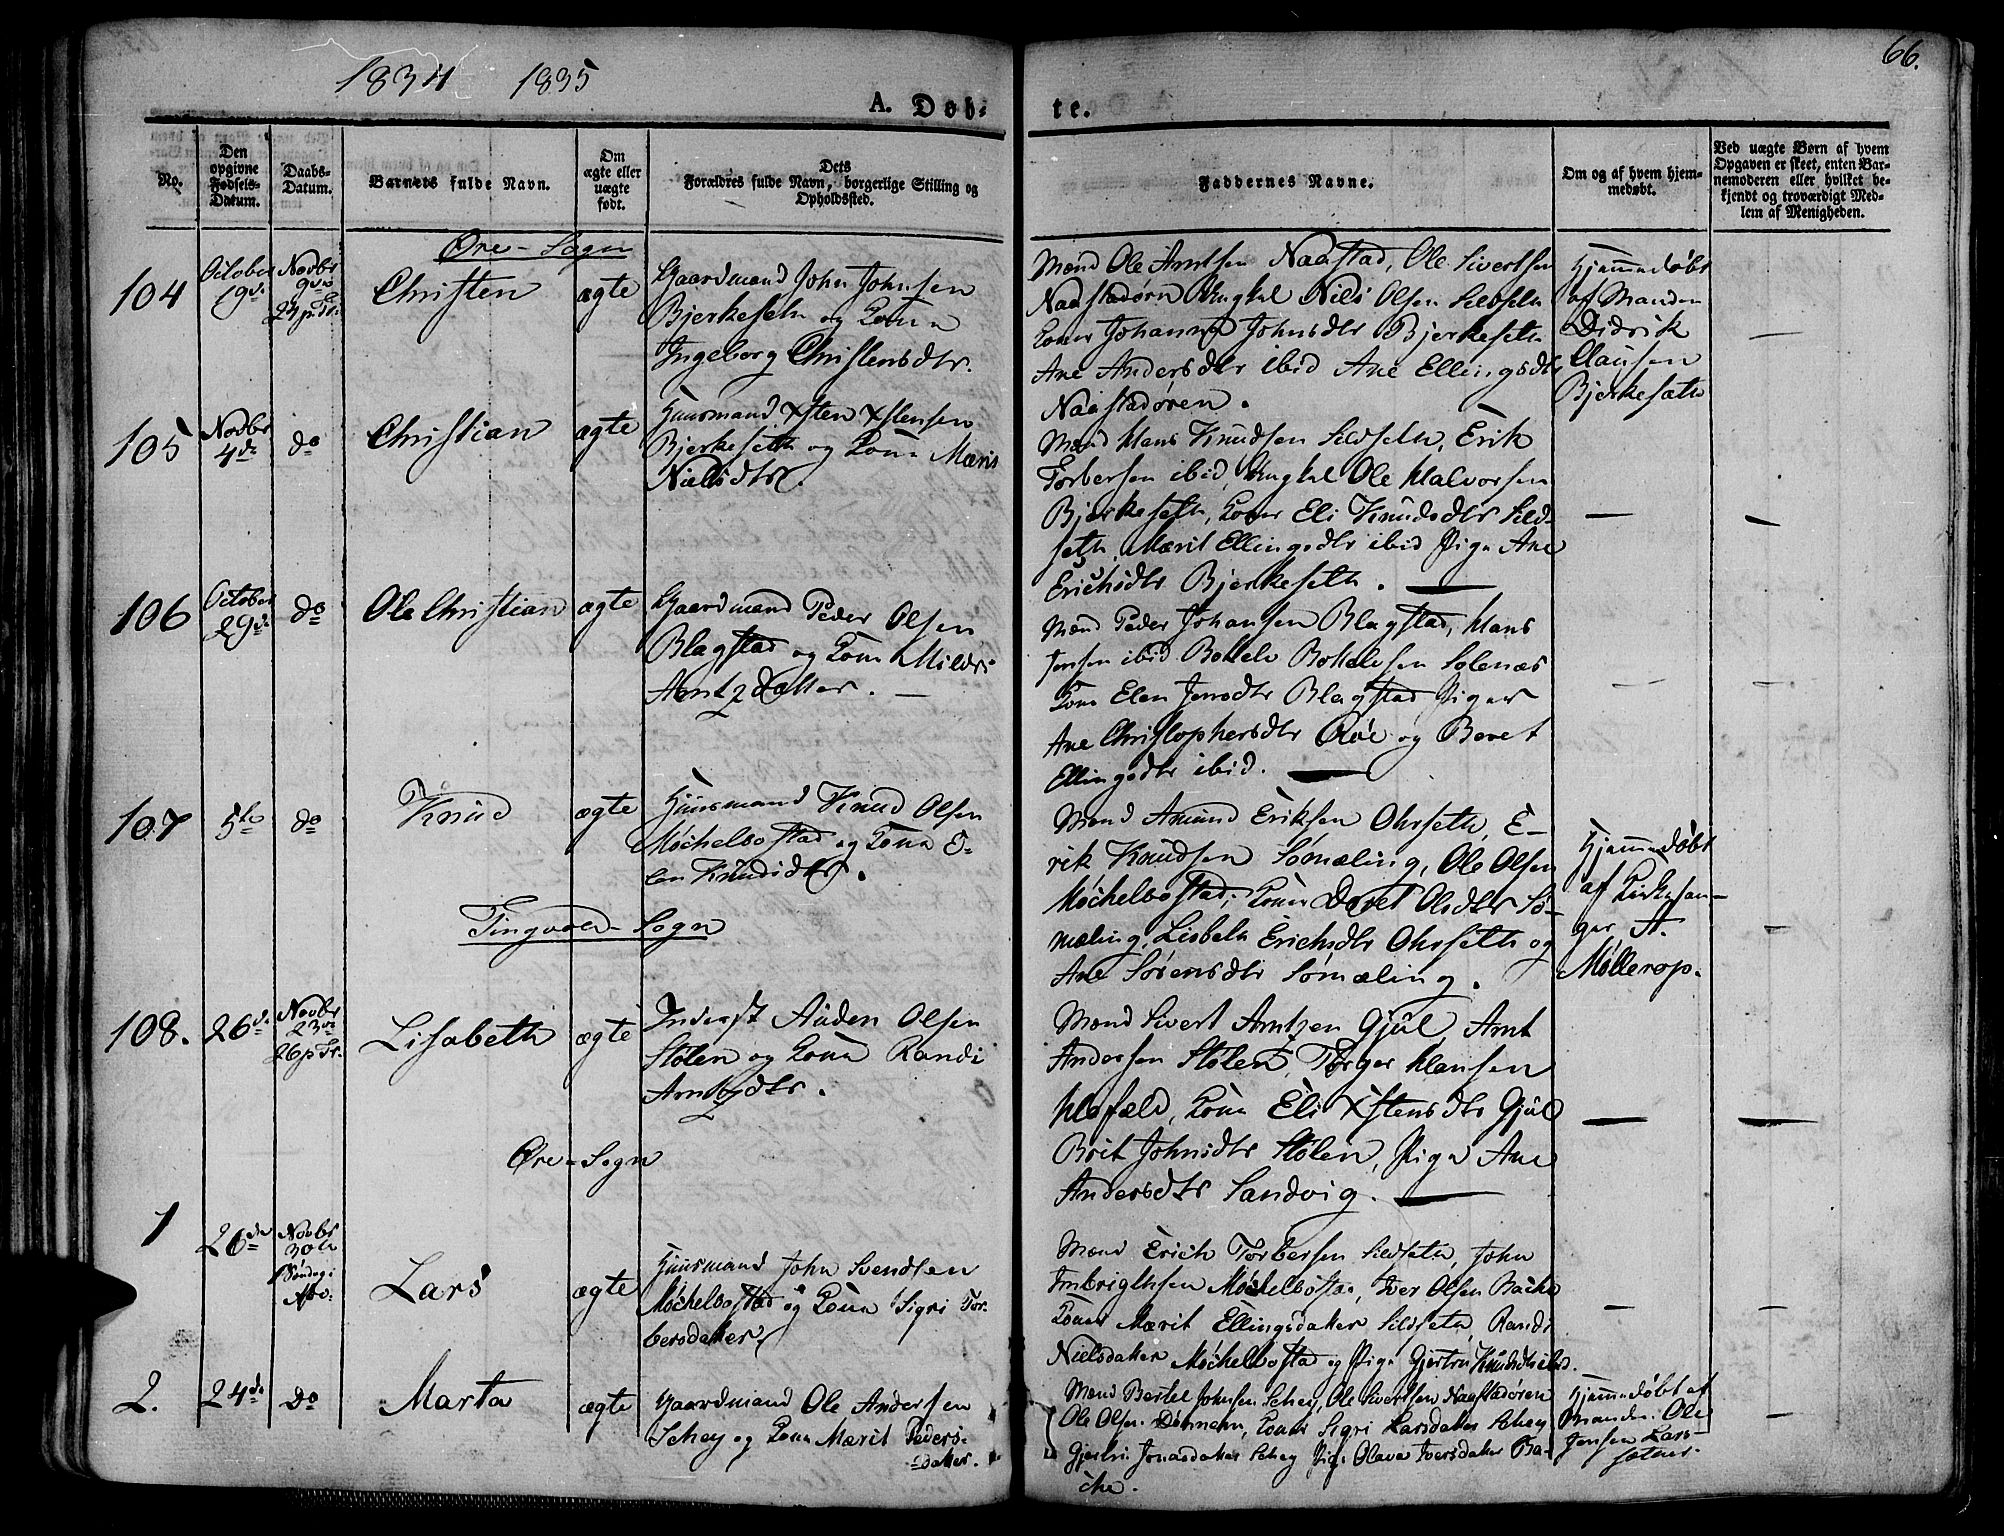 1834 1835
66.
A. Døb-
te.
No.
Den opgivne Fødsels-Datum.
Daabs-Datum.
Barnets fulde Navn.
Om ægte eller uægte født.
Dets Forældres fulde Navn, borgerlige Stilling og Opholdssted.
Faddernes Navne.
Om og af hvem hjem-medøbt.
Ved uægte Børn af hvem Opgaven er skeet, enten Bar-nemoderen eller hvilket be-kjendt og troværdigt Med-lem af Menigheden.
Øre-Sogn
104
October 19de
Novbr 9de
24 p. Tr.
Christen
ægte
Gaardmand John Johnsen
Bjerkeseth og Kone
Ingeborg Christensdtr.
Mænd Ole Arntsen Naastad, Ole Sivertsen
Naastadøren Ungkal Nils Olsen Sildseth
Koner Johanna Johnsdtr Bjerkeseth
Ane Andersdtr ibid Ane Ellingsdtr
Naastadøren.
Hjemmedøbt
af Manden
Didrik
Clausen
Bjerkesæth
105
Novbr 4de
do
Christian
ægte
Huusmand Xsten Xstensen
Bjerkeseth og Kone Marit
Nielsdtr.
Mænd Hans Knudsen Sildseth, Erik
Torbersen ibid, Ungkal Ole Halvorsen
Bjerkeseth, Koner Eli Knudsdtr Sild-
seth, Marit Ellingsdtr ibid Pige Ane
Erichsdtr Bjerkeseth.
106
October 29de
do
Ole Christian
ægte
Gaardmand Peder Olsen
Blagstad og Kone Mildri
Arntzdatter.
Mænd Peder Johansen Blagstad, Hans
Jensen ibid Bottele Bottelsen Solenæs
Kone Elen Jensdtr Blagstad Piger
Ane Christophersdtr Røe og Beret
Ellingsdtr ibid.
107
5te
do
Knud
ægte
Huusmand Knud Olsen
Møchelbostad og Kone E-
len Knudsdtr.
Mænd Amund Eriksen Ohrseth, E-
rik Knudsen Somæling, Ole Olsen
Møchelbostad, Koner Doret Olsdtr So-
mæling, Lisbeth Erichsdtr Ohrseth og
Ane Sørensdtr Somæling.
Hjemmedøbt
af Kirkesan-
ger A.
Møllerop.
Tingvold-Sogn
108.
26de
Novbr 23de
26 p Tr.
Lisabeth
ægte
Inderst Auden Olsen
Stølen og Kone Randi
Arntzdtr.
Mænd Sivert Arntzen Gjül, Arnt
Andersen Stølen, Torger Hansen
Kone Eli Xstensdtr Gjül
Brit Johnsdtr Stølen, Pige Ane
Andersdtr Sandvig.
Øre-Sogn
1
26de
Novbr 30te
1 Søndag i
Adv.
Lars
ægte
Huusmand John Svendsen
Møchelbostad og Kone Sigri Tor-
bersdatter
Mænd Erich Torbersen Sildseth, John
Imbrigtsen Møchelbostad, Iver Olsen Bache
Koner Marit Ellingsdatter Sildseth, Randi
Nielsdatter Møchelbostad og Pige Gjertru Knudsdtr ibid.
2.
24de
Do
Marta
ægte
Gaardmand Ole Andersen
Schey og Kone Marit Peders-
datter.
Mænd Bertel Johnsen Schey, Ole Sivertsen Naastadøren
Ole Olsen Koner Sigri Larsdatter Schey
Gjertru Jonasdatter Schey Pige Olava Iversdatter Ba-
che.
Hjemmedøbt af
Manden Ole
Jensen Lars-